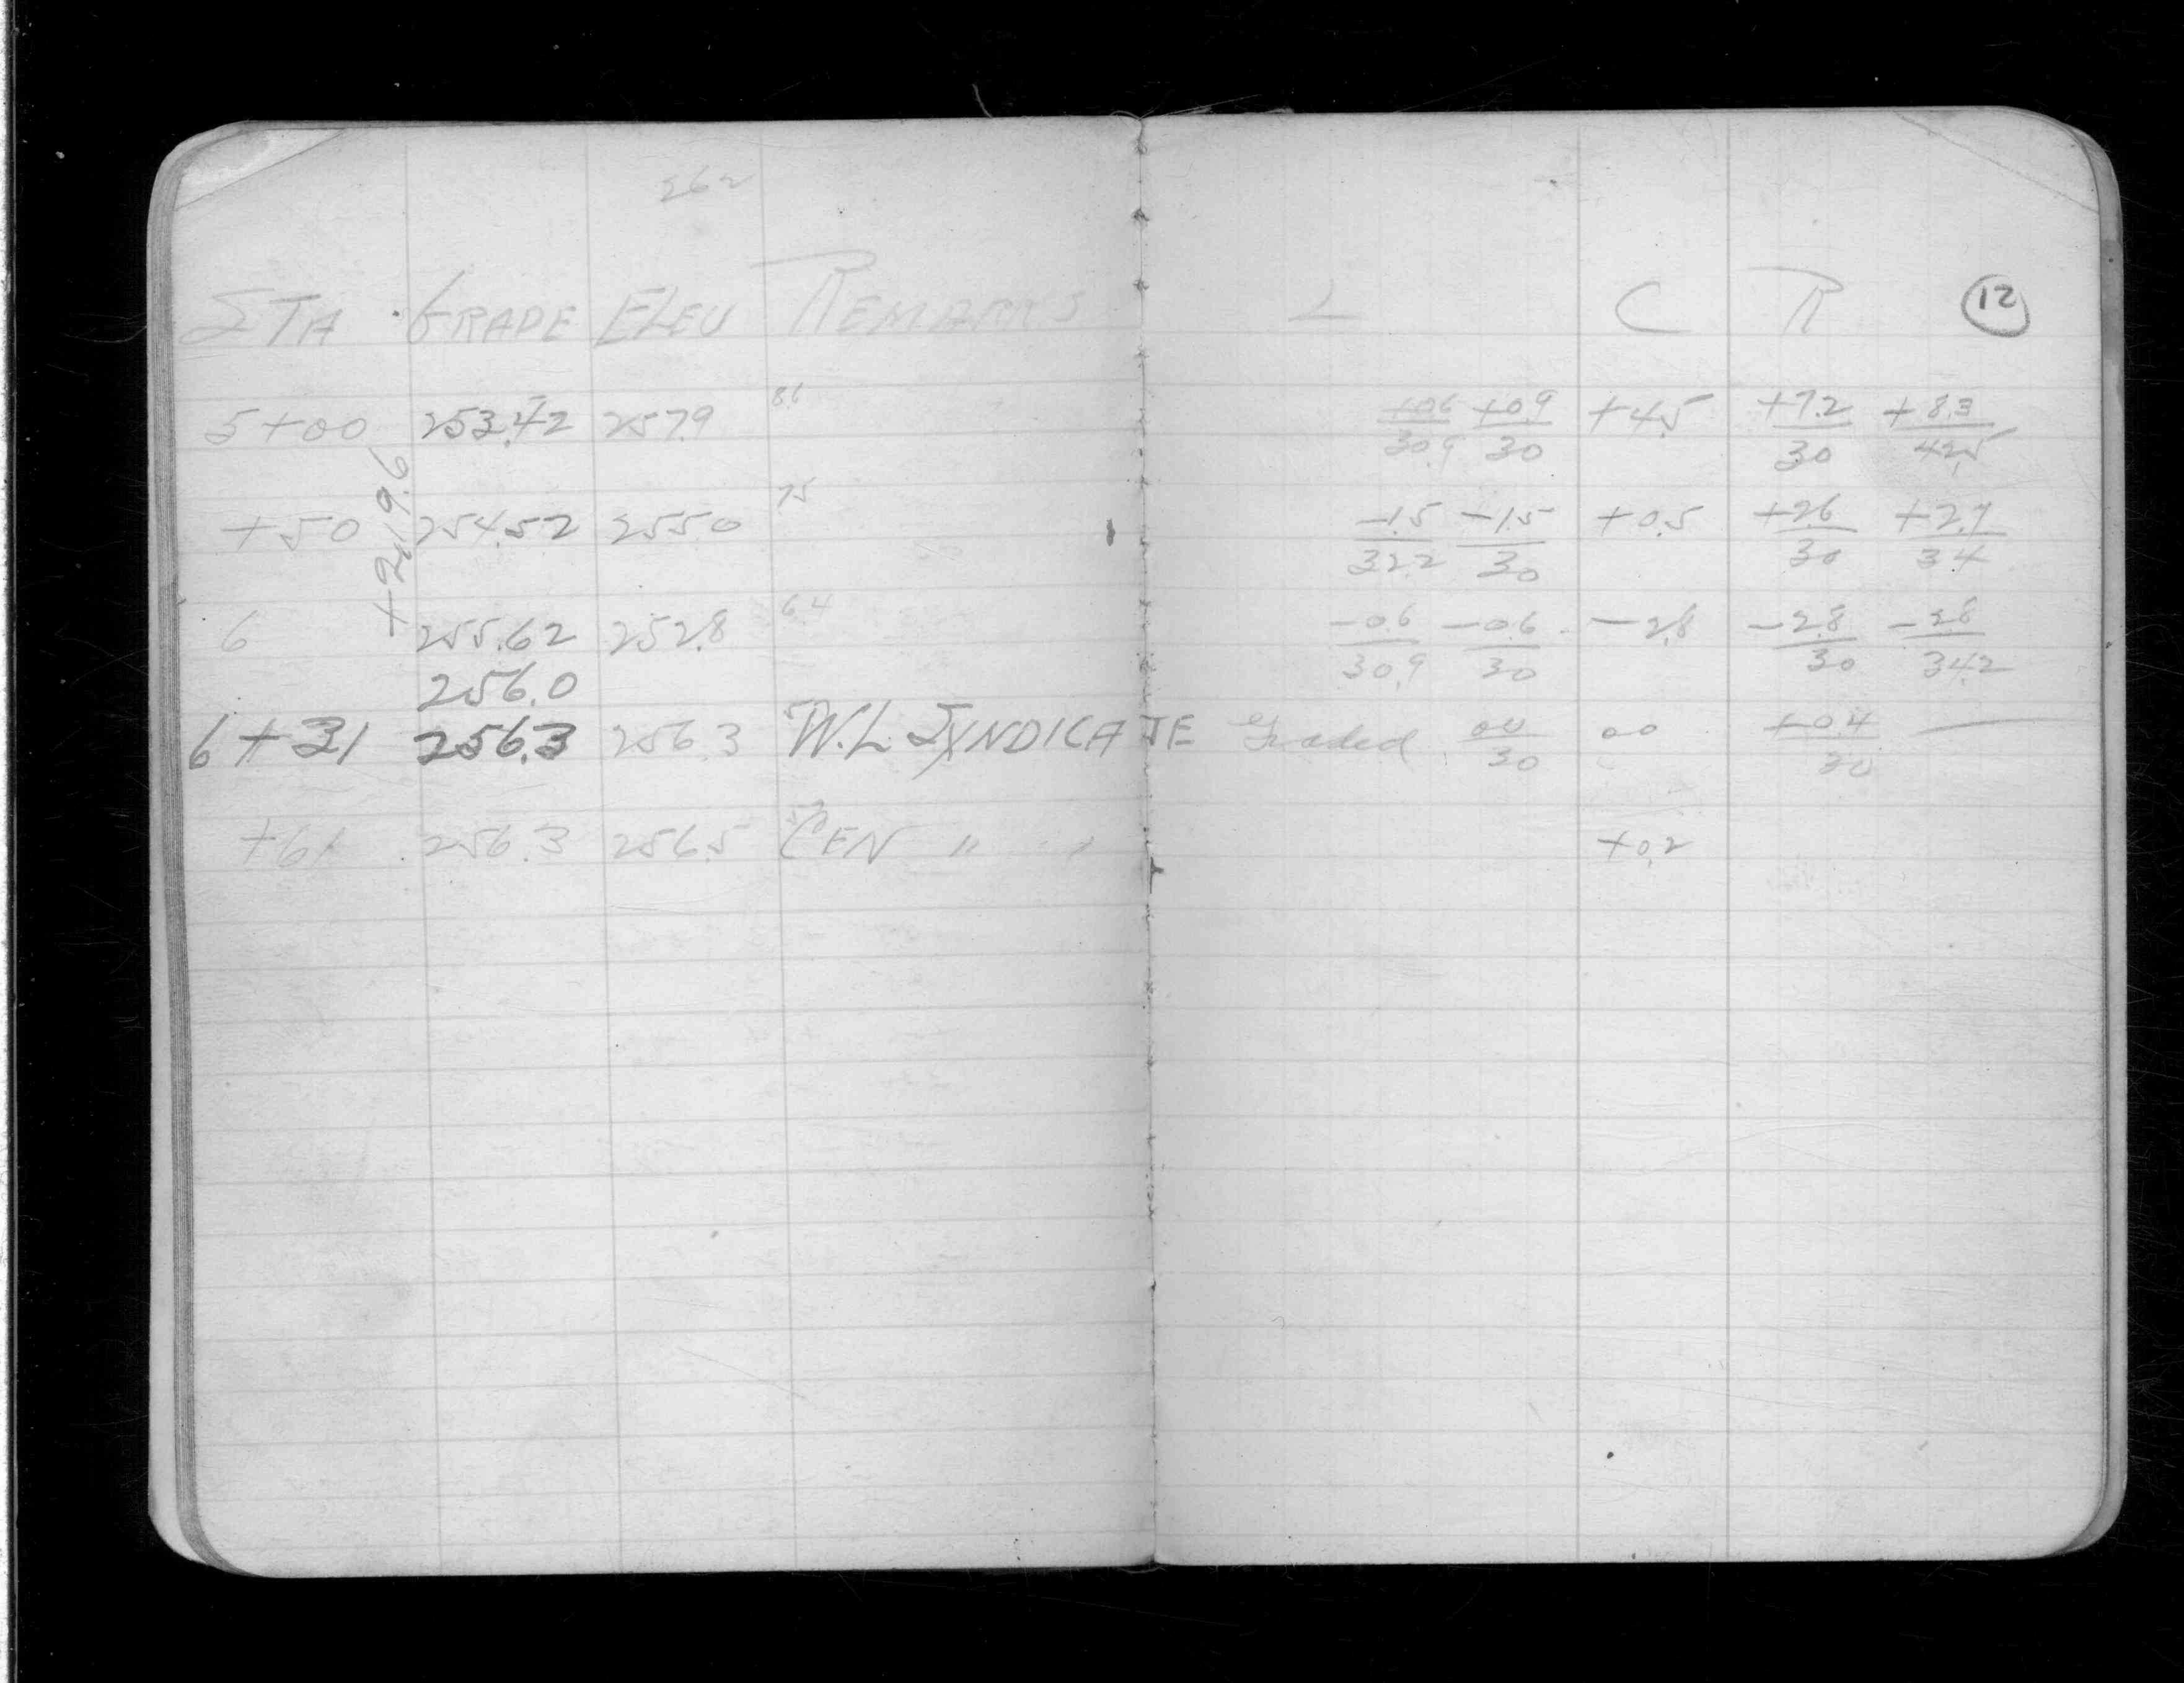 262
STA GRADE ELEV REMARKS L C R 12
5+00 253.42 257.9 86 +0.6/30.9 +0.9/30 +4.5 +7.2/30 +8.3/42.5
+2.196
+50 254.52 255.0 75 -1.5/32.2 -1.5/30 +0.5 +2.6/30 +2.7/34
6 255.62 252.8 64 -0.6/30.9 -0.6/30 -2.8 -2.8/30 -2.8/34.2
256.0
6+31 256.3 256.3 W.L. SYNDICATE Graded 00/30 00 +0.4/30 —
+61 256.3 256.5 CEN " " +0.2